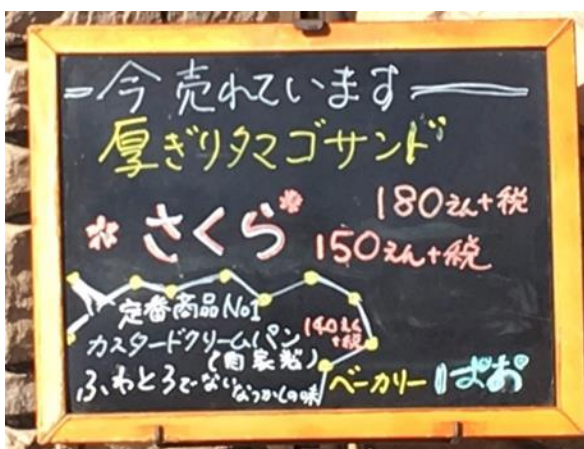 今売れています
厚ぎりタマゴサンド
180えん+税
さくら 150えん+税
定番商品No1
カスタードクリームパン 140えん+税
(自家製)
ふわとろでないなつかしの味
ベーカリー ぱお